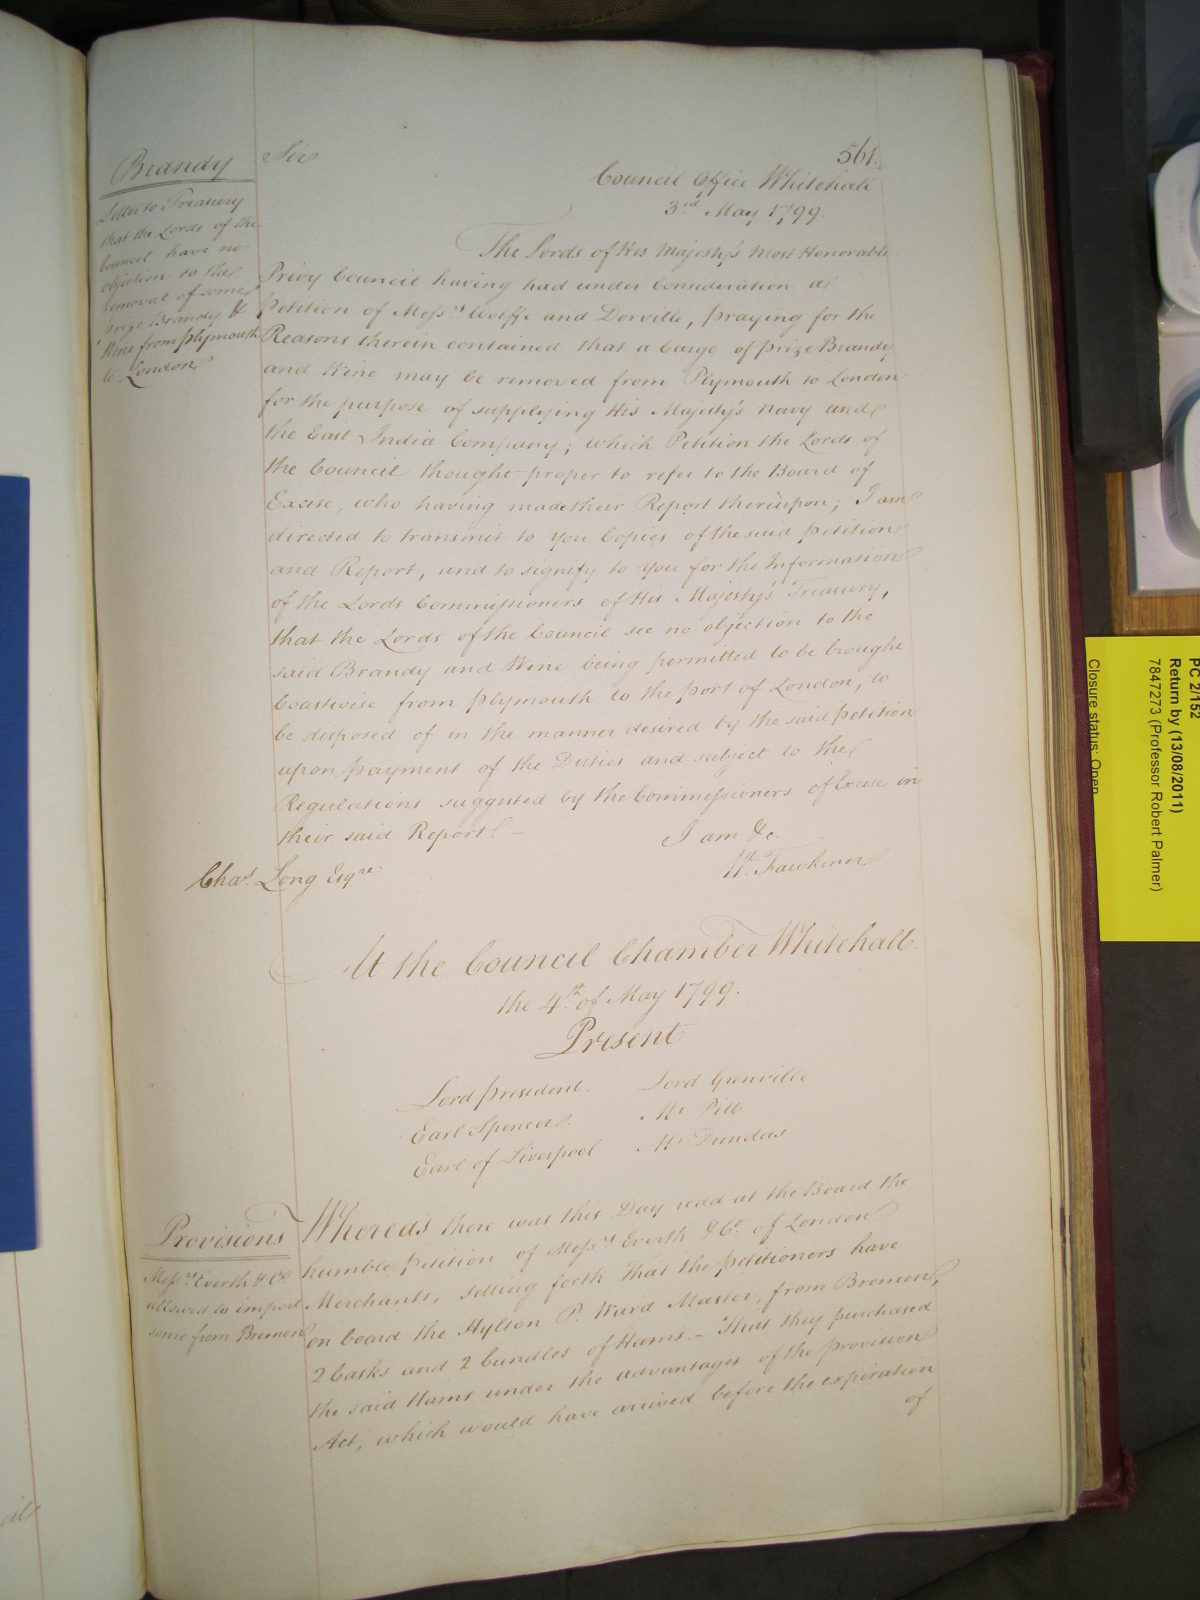 561.
Brandy
Letter to Treasury
that the Lords of the
Council have no
objection to the
removal of some
prize Brandy &
Wine from plymouth
to London
Sir
Council Office Whitehall
3rd May 1799.
The Lords of His Majesty's Most Honorable
Privy Council having had under Consideration a
Petition of Messrs Wolffe and Dorville, praying for the
Reasons therein contained that a Cargo of prize Brandy
and Wine may be removed from Plymouth to London
for the purpose of supplying His Majesty's Navy and
the East India Company; which Petition the Lords of
the Council thought proper to refer to the Board of
Excise, who having made their Report thereupon; I am
directed to transmit to you Copies of the said petition
and Report, and to signify to you for the Information
of the Lords Commissioners of His Majesty's Treasury,
that the Lords of the Council see no objection to the
said Brandy and Wine being permitted to be brought
Coastwise from plymouth to the port of London, to
be disposed of in the manner desired by the said petition
upon payment of the Duties and subject to the
Regulations suggested by the Commissioners of Excise in
their said Report. -
I am &c.
W. Fawkener
Chas. Long Esqre
At the Council Chamber Whitehall.
the 4th of May 1799.
Present
Lord president. Lord Grenville
Earl Spencer. Mr Pitt
Earl of Liverpool Mr Dundas
Provisions
Messrs Everth & Co
allowed to import
some from Bremen
Whereas there was this Day read at the Board the
humble petition of Messrs Everth & Co. of London
Merchants, setting forth That the petitioners have
on board the Hylton P. Ward Master, from Bremen,
2 Casks and 2 bundles of Hams. - That they purchased
the said Hams under the advantages of the provision
Act, which would have arrived before the expiration
of
PC 2/152
Return by (13/08/2011)
7847273 (Professor Robert Palmer)
Closure status: Open